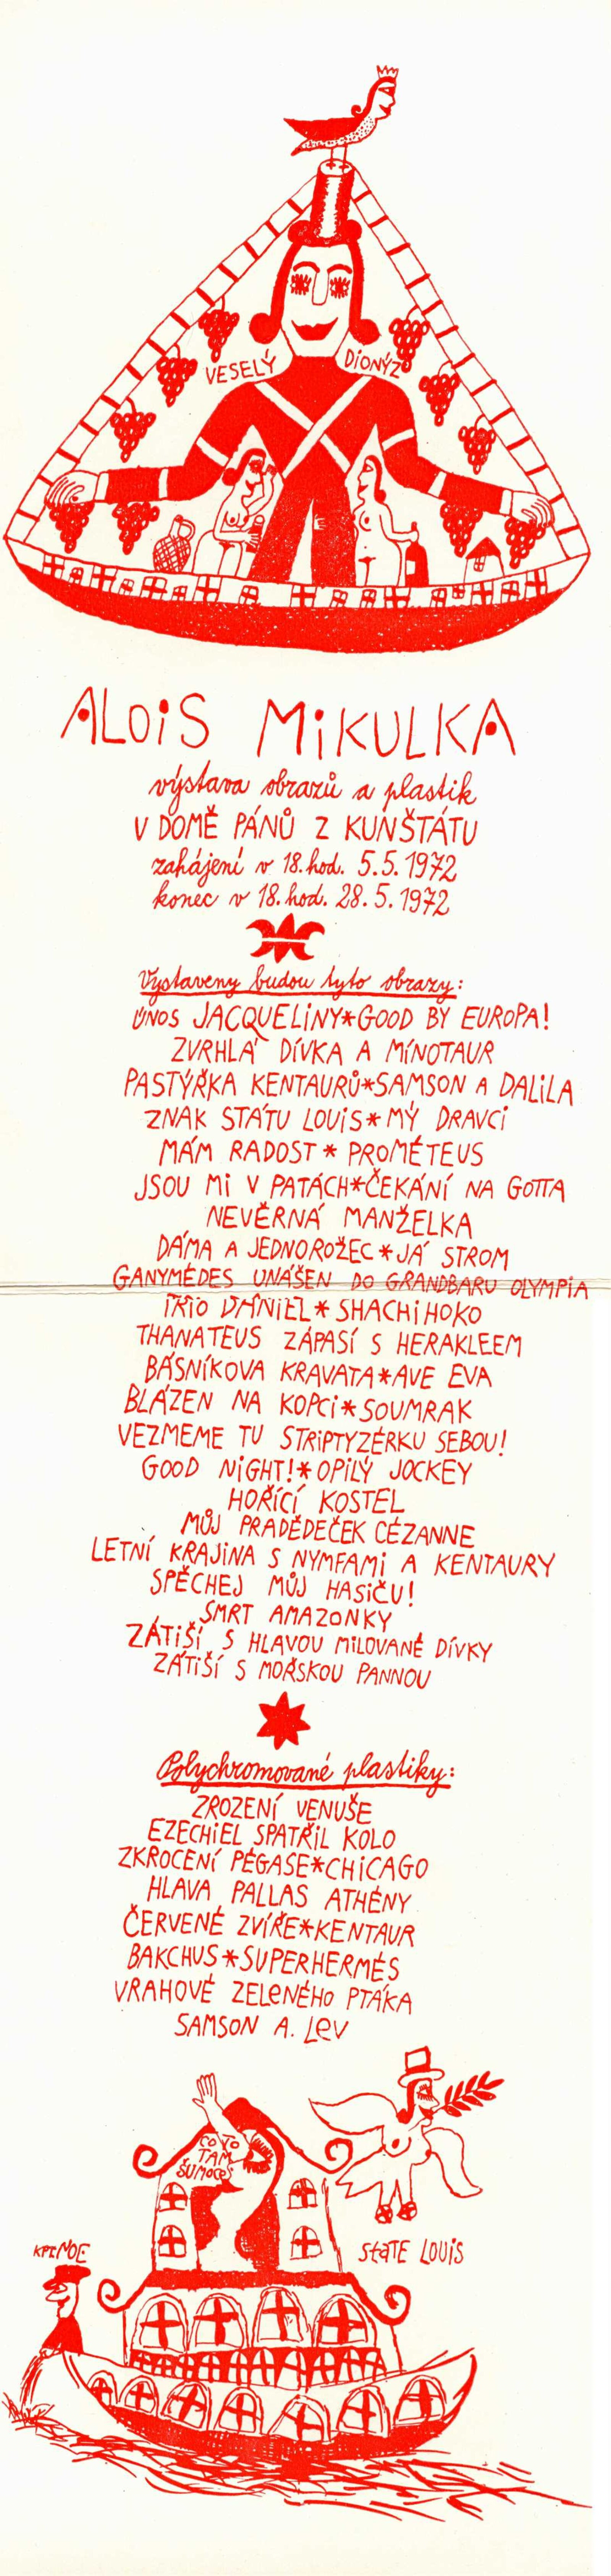 VESELÝ DIONÝZ
ALOIS MIKULKA
výstava obrazů a plastik
V DOMĚ PÁNŮ Z KUNŠTÁTU
zahájení v 18.hod. 5.5.1972
konec v 18.hod. 28.5.1972
Vystaveny budou tyto obrazy:
ÚNOS JACQUELINY*GOOD BY EUROPA!
ZVRHLÁ DÍVKA A MÍNOTAUR
PASTÝŘKA KENTAURŮ*SAMSON A DALILA
ZNAK STÁTU LOUIS*MÝ DRAVCI
MÁM RADOST*PROMÉTEUS
JSOU MI V PATÁCH*ČEKÁNÍ NA GOTTA
NEVĚRNÁ MANŽELKA
DÁMA A JEDNOROŽEC*JÁ STROM
GANYMÉDES UNÁŠEN DO GRANDBARU OLYMPIA
TRIO DANIEL*SHACHIHOKO
THANATEUS ZÁPASÍ S HERAKLEEM
BÁSNÍKOVA KRAVATA*AVE EVA
BLÁZEN NA KOPCI*SOUMRAK
VEZMEME TU STRIPTYZÉRKU SEBOU!
GOOD NIGHT!*OPILÝ JOCKEY
HOŘÍCÍ KOSTEL
MŮJ PRADĚDEČEK CÉZANNE
LETNÍ KRAJINA S NYMFAMI A KENTAURY
SPĚCHEJ MŮJ HASIČU!
SMRT AMAZONKY
ZÁTIŠÍ S HLAVOU MILOVANÉ DÍVKY
ZÁTIŠÍ S MOŘSKOU PANNOU
Polychromované plastiky:
ZROZENÍ VENUŠE
EZECHIEL SPATŘIL KOLO
ZKROCENÍ PÉGASE*CHICAGO
HLAVA PALLAS ATHÉNY
ČERVENÉ ZVÍŘE*KENTAUR
BAKCHUS*SUPERHERMÉS
VRAHOVÉ ZELENÉHO PTÁKA
SAMSON A. LEV
CO TO
TAM
NOE
STATE LOUIS